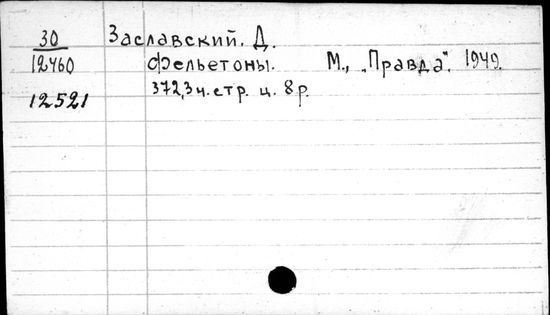 30 Заславский. Д.
12460 Фельетоны. М., „Правда", 1949.
12521 372,3 ч. стр. ц. 8 р.